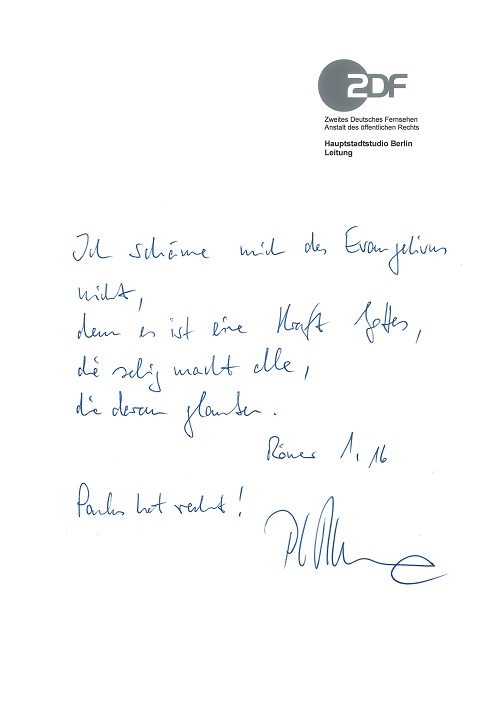 ZDF
Zweites Deutsches Fernsehen
Anstalt des öffentlichen Rechts
Hauptstadtstudio Berlin
Leitung
Ich schäme mich des Evangeliums
nicht,
denn es ist eine Kraft Gottes,
die selig macht alle,
die daran glauben.
Römer 1, 16
Paulus hat recht!